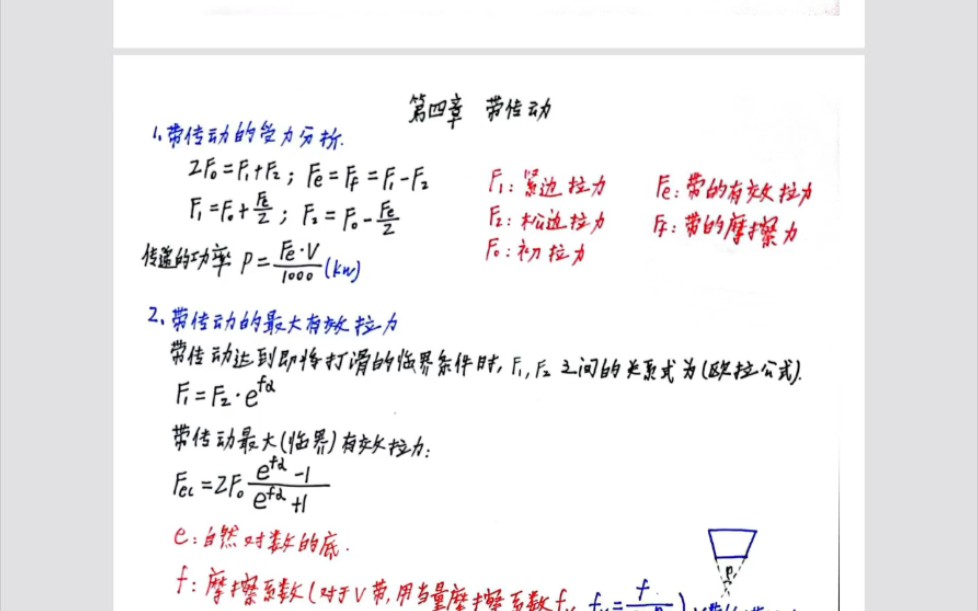 第四章 带传动
1、带传动的受力分析.
2F₀=F₁+F₂; Fe=Ff=F₁-F₂
F₁=F₀+Fe/2; F₂=F₀-Fe/2
传递的功率 P=Fe·V/1000 (kw)
F₁: 紧边拉力 Fe: 带的有效拉力
F₂: 松边拉力 Ff: 带的摩擦力
F₀: 初拉力
2、带传动的最大有效拉力
带传动达到即将打滑的临界条件时, F₁, F₂ 之间的关系式为(欧拉公式).
F₁=F₂·e^fα
带传动最大(临界)有效拉力:
Fec=2F₀ (e^fα -1)/(e^fα +1)
e: 自然对数的底.
f: 摩擦系数(对于V带,用当量摩擦系数fv